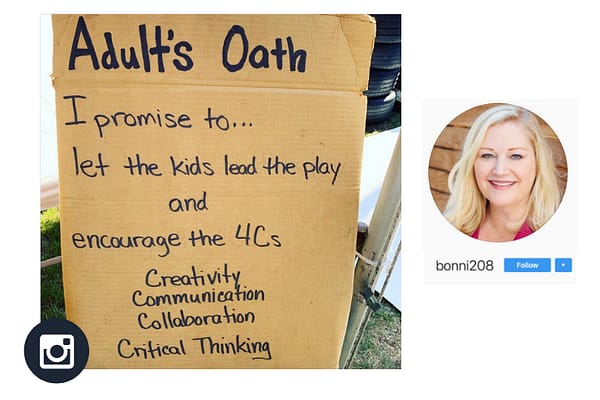 Adult's Oath
I promise to...
let the kids lead the play
and
encourage the 4Cs
Creativity
Communication
Collaboration
Critical Thinking
bonni208
Follow